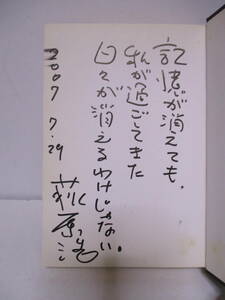 記憶が消えても、
私が過ごしてきた
日々が消えるわけじゃない。
2007 7.29
荻原浩